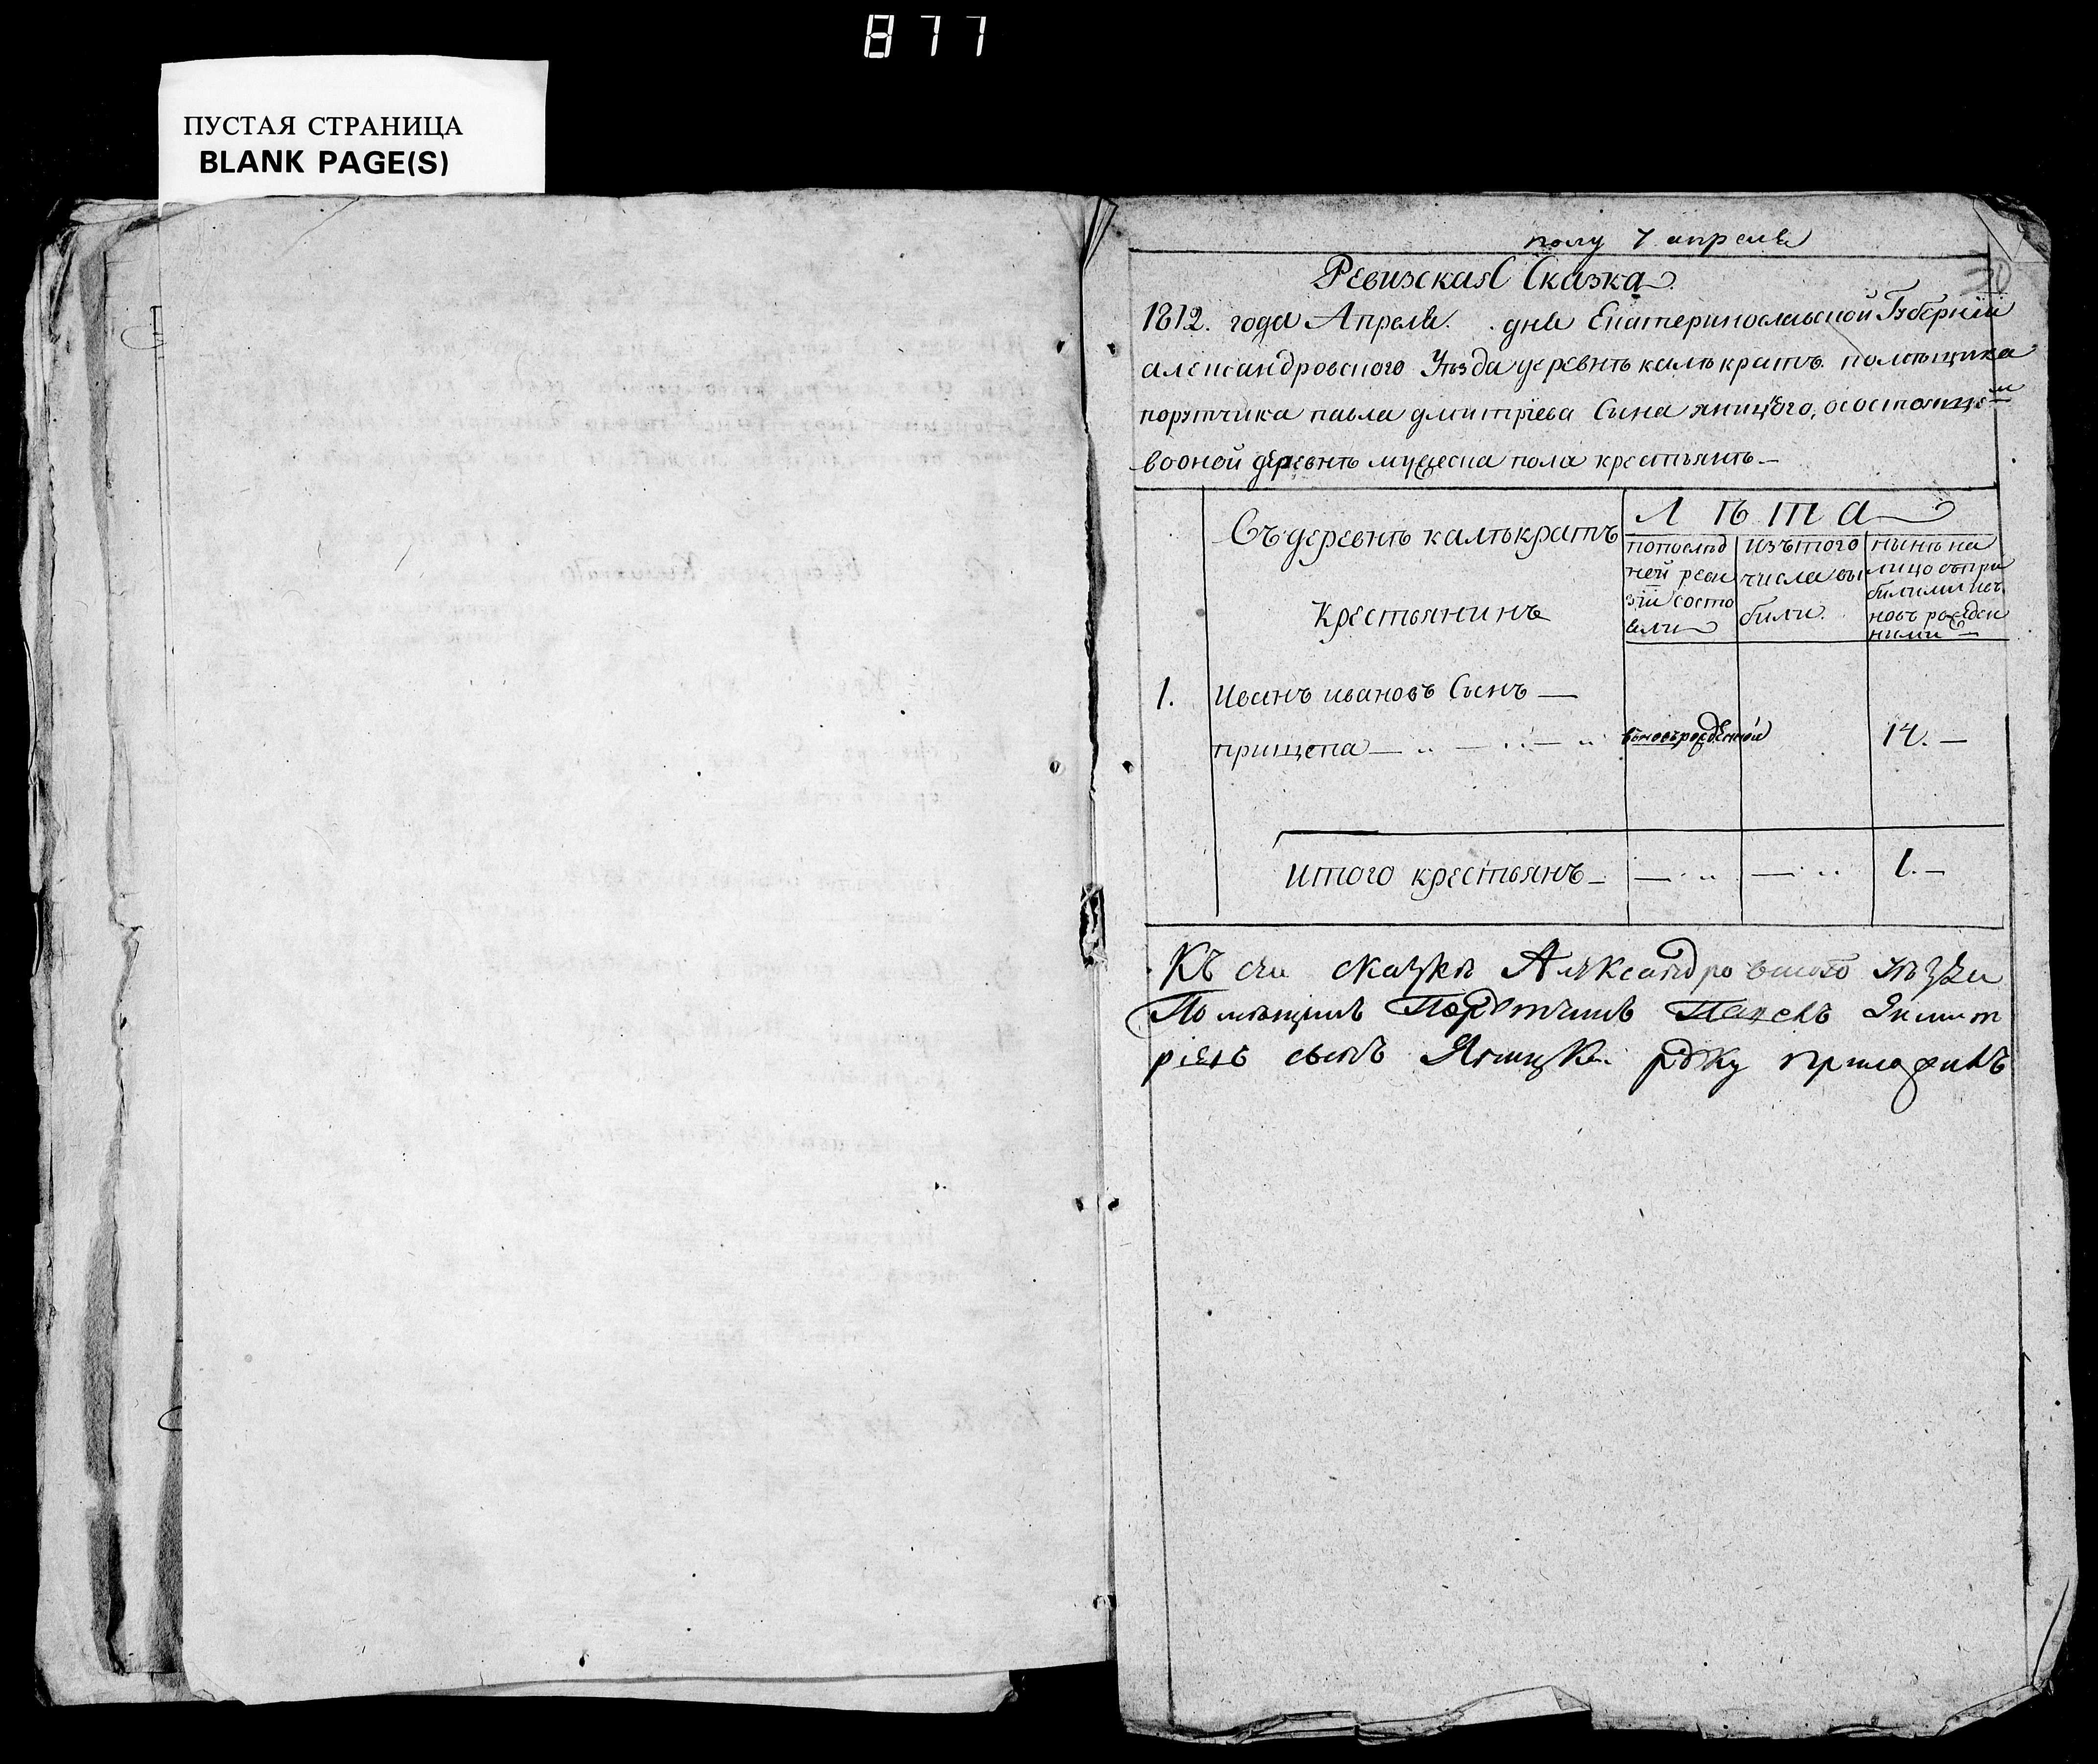 877
ПУСТАЯ СТРАНИЦА
BLANK PAGE(S)
полу 7 апреля
30
Ревизская Сказка
1812. года Апреля. дня Екатеринославской Губерніи
александровского Уѣзда деревнѣ калѣкратъ помѣщика
порутчика павла дмитріева Сына яницкого, осостоящем
вооной деревнѣ мужеска пола крестьянъ —
Съ деревнѣ калѣкратъ
Крестьянинъ
Лѣта
попослѣд
ней реви
зіи состо
яли
изътого
числа вы
были.
нынѣ на
лицо съпри
былими ивъ
новь рожден
ними —
1. Иванъ ивановъ Сынъ —
прищепа — вновьрожденной 14. —
Итого крестьянъ — 1. —
Къ сеи сказкѣ Александровского уѣзда
Помѣщикъ Порутчикъ Павелъ Дмит
ріевъ сынъ Яницкій руку приложилъ